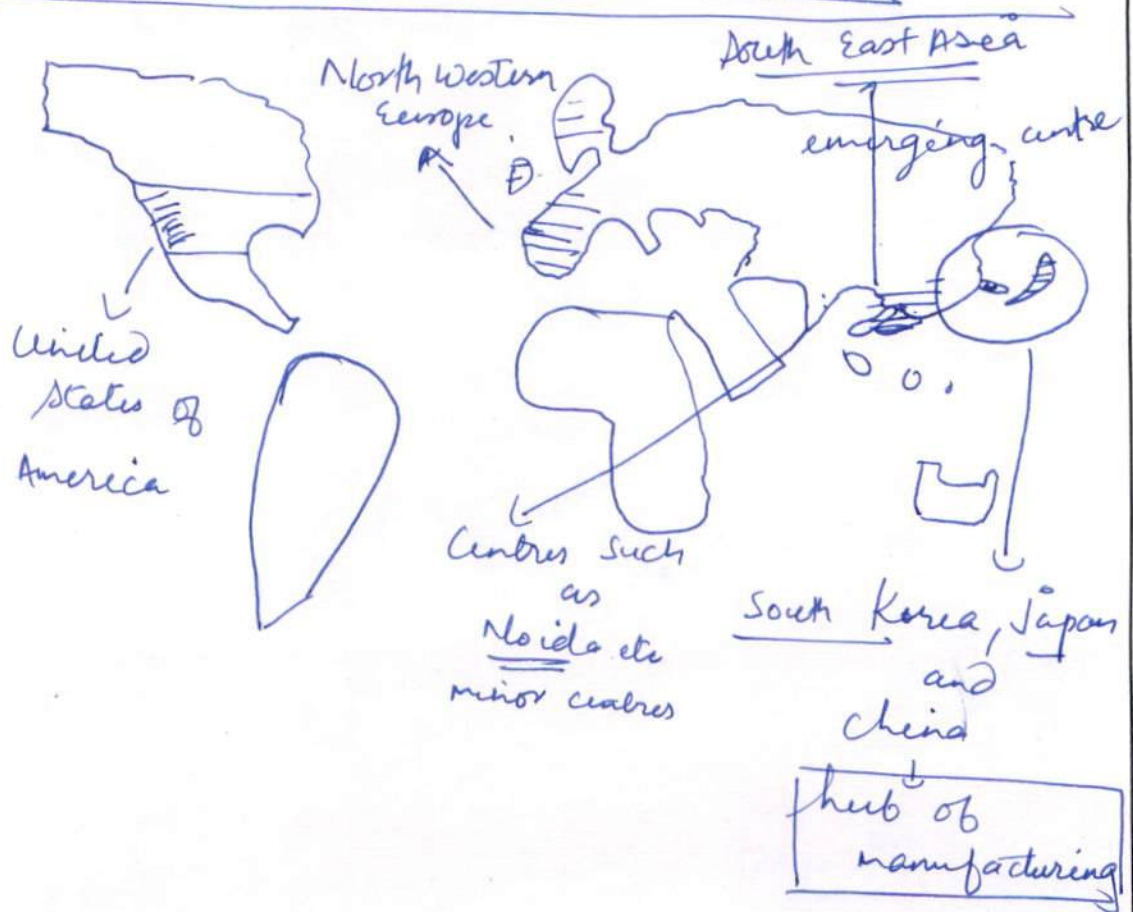 South East Asia
North western
Europe
emerging centre
United
States of
America
Centres such
as
Noida etc
minor centres
South Korea, Japan
and
China
hub of
manufacturing